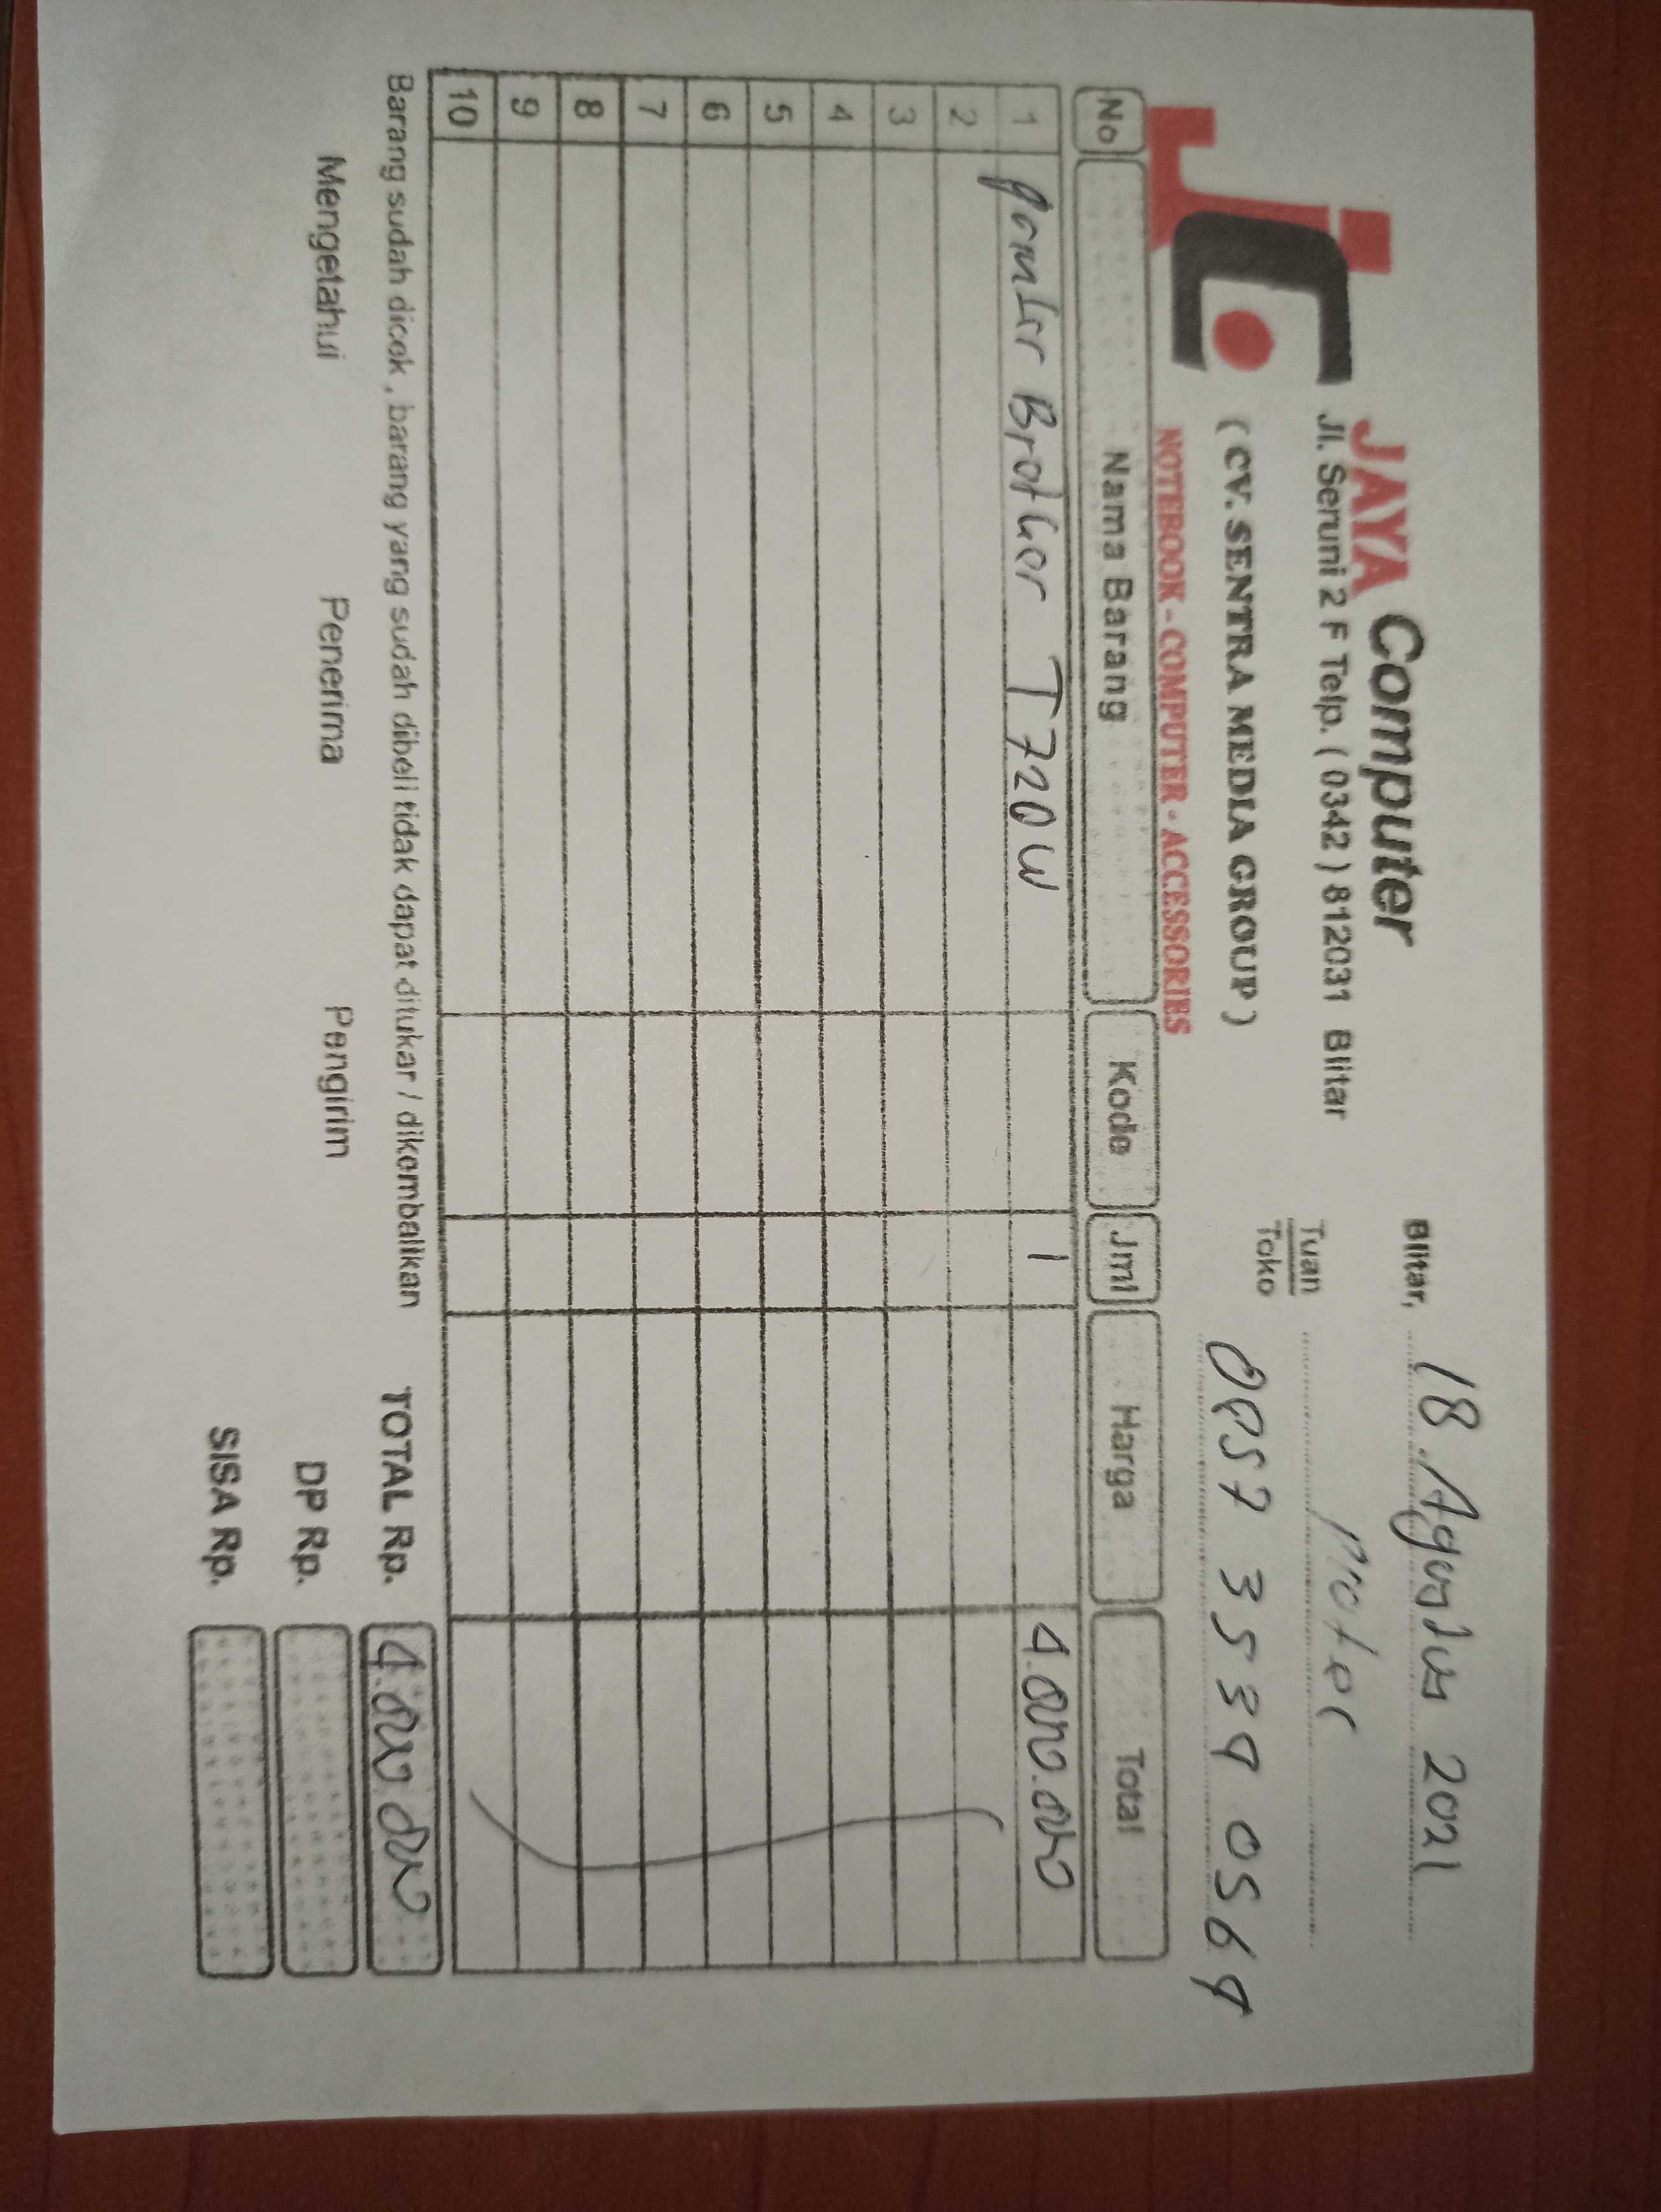 JC
JAYA Computer
Jl. Seruni 2 F Telp. ( 0342 ) 812031 Blitar
( CV. SENTRA MEDIA GROUP )
NOTEBOOK - COMPUTER - ACCESSORIES
Blitar, 18 Agustus 2021
Tuan
Toko
No Nama Barang Kode Jml Harga Total
1 Brother T720W 1 4.000.000
2
3
4
5
6
7
8
9
10
Barang sudah dicek , barang yang sudah dibeli tidak dapat ditukar / dikembalikan
TOTAL Rp. 4.000.000
Mengetahui Penerima Pengirim
DP Rp.
SISA Rp.